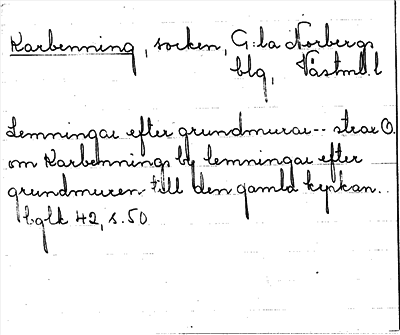 Karbenning, socken, G:la Norbergs
blg, Västml. l
Lemningar efter grundmurar -- strax O.
om Karbennings by lemningar efter
grundmuren till den gamla kyrkan..
bglk 42, s. 50